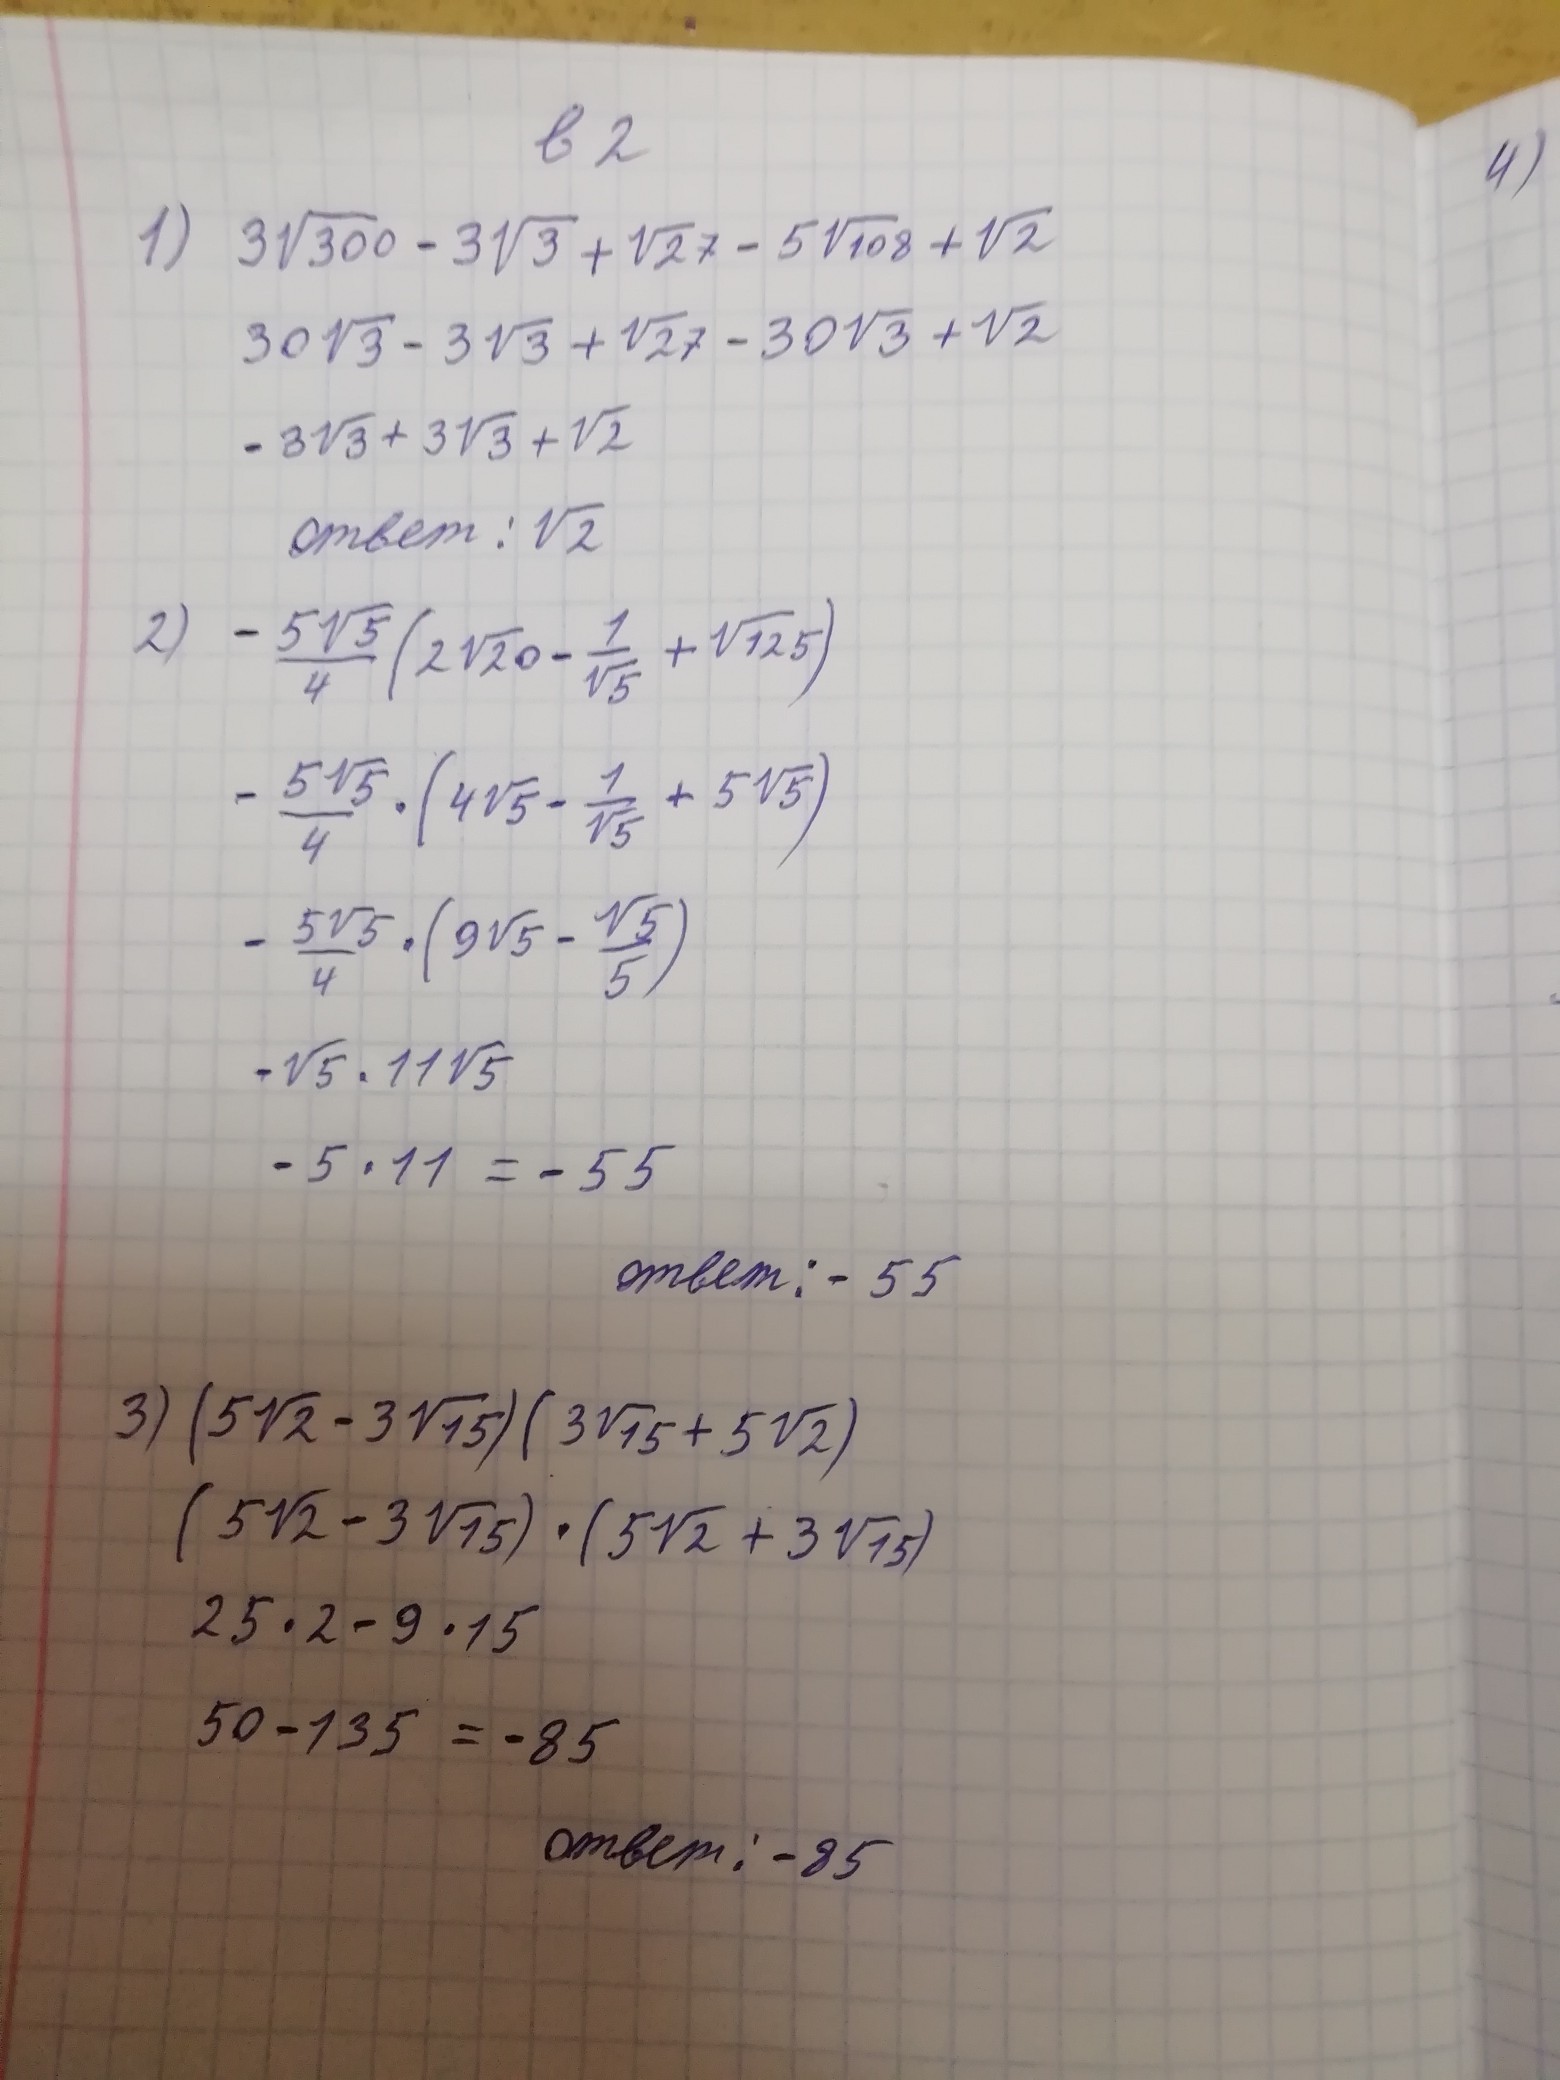 в 2
4)
1) 3√300 - 3√3 + √27 - 5√108 + √2
30√3 - 3√3 + √27 - 30√3 + √2
- 3√3 + 3√3 + √2
ответ: √2
2) - 5√5/4 (2√20 - 1/√5 + √125)
- 5√5/4 · (4√5 - 1/√5 + 5√5)
- 5√5/4 · (9√5 - √5/5)
- √5 · 11√5
- 5 · 11 = - 55
ответ: - 55
3) (5√2 - 3√15)(3√15 + 5√2)
(5√2 - 3√15) · (5√2 + 3√15)
25 · 2 - 9 · 15
50 - 135 = - 85
ответ: - 85